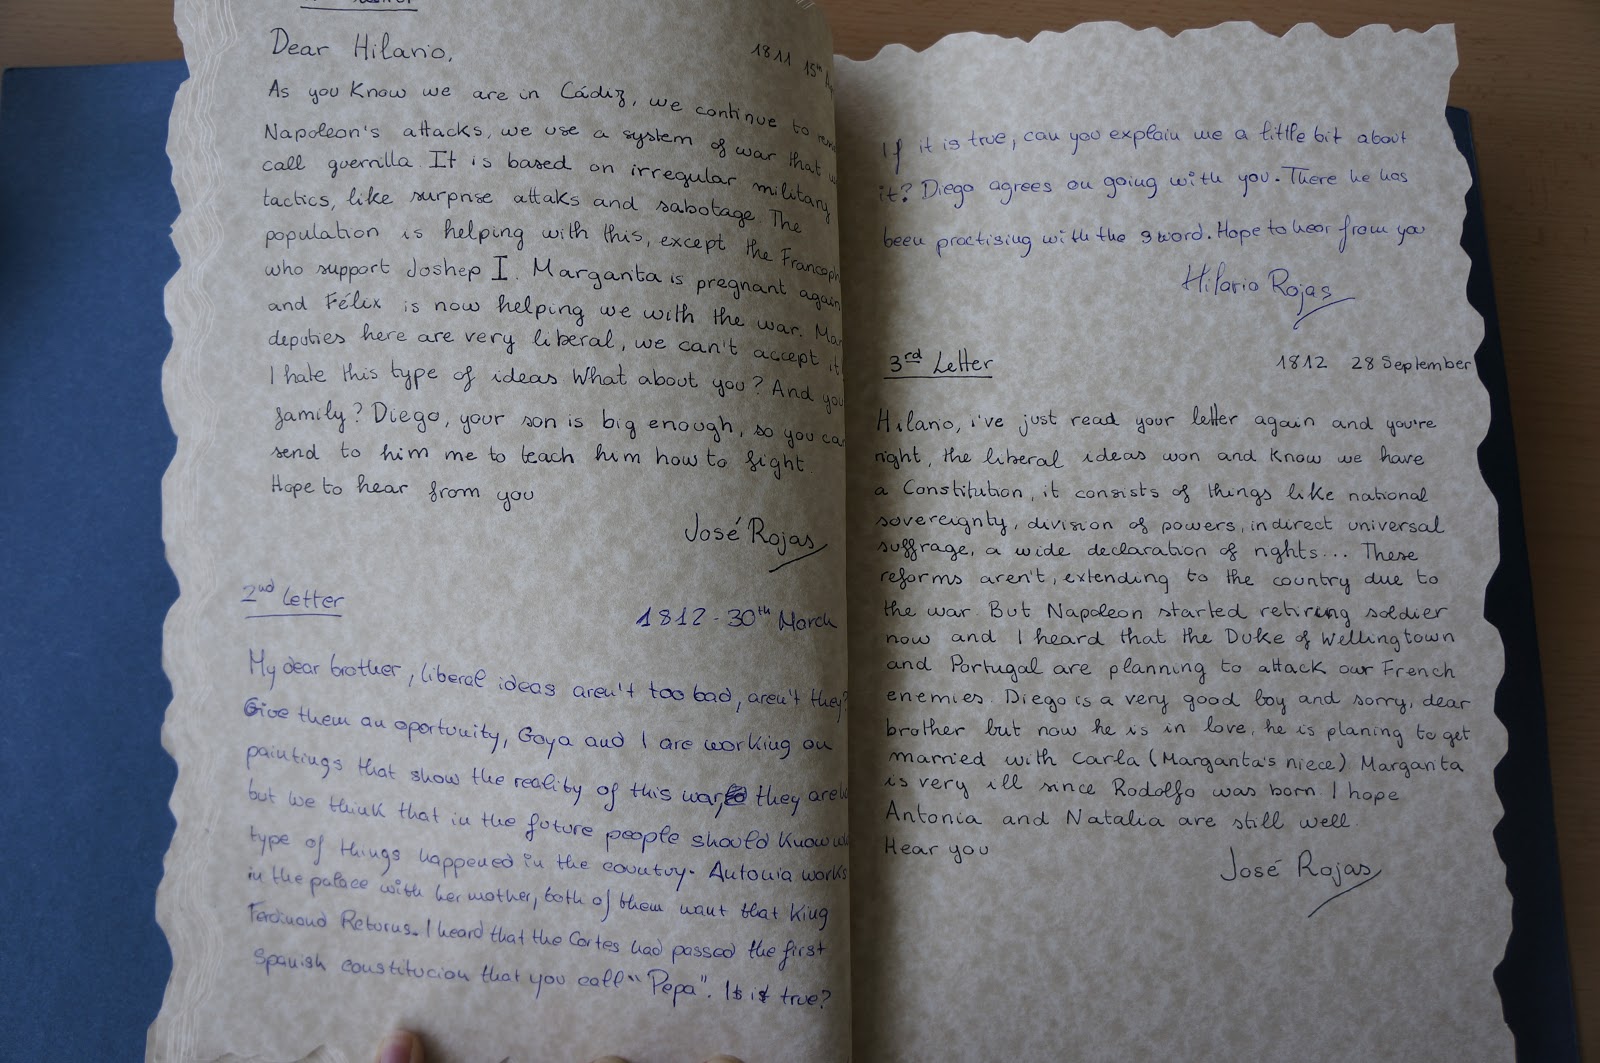 Dear Hilario,
1811 15th
As you Know we are in Cádiz, we continue to
Napoleon's attacks, we use a system of war that
call guerrilla. It is based on irregular military
tactics, like surprise attaks and sabotage. The
population is helping with this, except the
who support Joshep I. Margarita is pregnant again
and Félix is now helping we with the war.
deputies here are very liberal, we can't accept it
I hate this type of ideas What about you? And
family? Diego, your son is big enough, so you
send to him me to teach him how to fight.
Hope to hear from you
José Rojas
2nd letter
1812 - 30th March
My dear brother, liberal ideas aren't too bad, aren't they?
Give them an oportunity, Goya and I are working on
paintings that show the reality of this war, they are
but we think that in the future people should Know
type of things happened in the country. Antonia works
in the palace with her mother, both of them want that King
Ferdinand Returns. I heard that the Cortes had passed the first
Spanish constitucion that you call "Pepa". Is it true?
If it is true, can you explain me a little bit about
it? Diego agrees on going with you. There he has
been practising with the sword. Hope to hear from you
Hilario Rojas
3rd Letter
1812 28 September
Hilario, i've just read your letter again and you're
right, the liberal ideas won and Know we have
a Constitution, it consists of things like national
sovereignty, division of powers, indirect universal
suffrage, a wide declaration of rights... These
reforms aren't, extending to the country due to
the war. But Napoleon started retiring soldier
now and I heard that the Duke of Wellingtown
and Portugal are planning to attack our French
enemies. Diego is a very good boy and sorry, dear
brother but now he is in love, he is planing to get
married with Carla (Margarita's niece) Margarita
is very ill since Rodolfo was born. I hope
Antonia and Natalia are still well.
Hear you
José Rojas